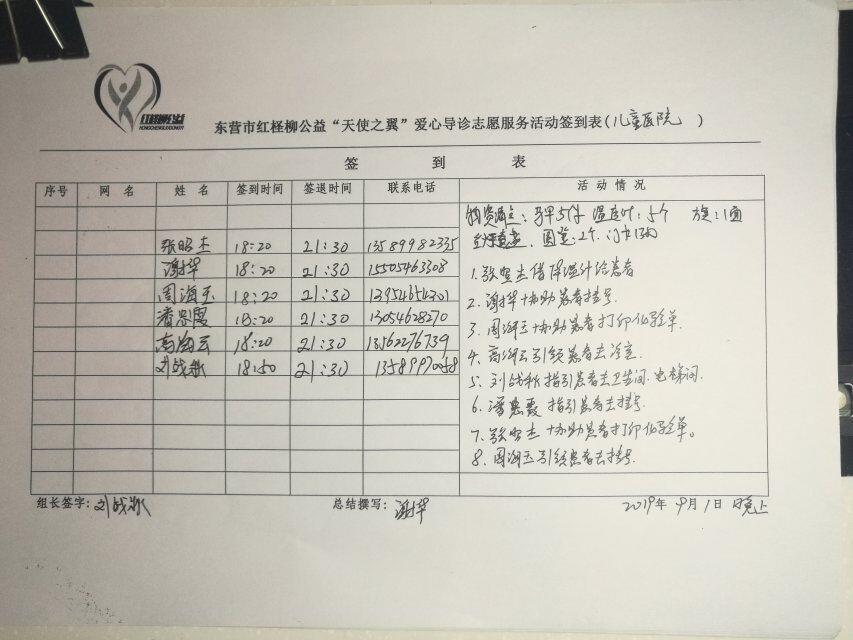 红柽柳公益
东营市红柽柳公益“天使之翼”爱心导诊志愿服务活动签到表(儿童医院 )
签 到 表
序号 网 名 姓 名 签到时间 签退时间 联系电话 活动情况
物资清点:马甲5件 温度计:5个 旗:1面
圆凳:2个
张昭杰 18:20 21:30 13589982335
谢华 18:20 21:30 15505463308
周海玉 18:20 21:30
潘思霞 18:20 21:30 13054628270
高海云 18:20 21:30 13562276739
刘战秋 18:50 21:30
1.张昭杰借降温计给患者
2.谢华协助患者挂号.
3.周海玉协助患者打印化验单.
4.高海云引领患者去诊室.
5.刘战秋指引患者去卫生间.电梯间.
6.潘思霞指引患者去挂号.
7.张昭杰协助患者打印化验单。
8.周海玉引领患者去挂号.
组长签字:刘战秋 总结撰写:谢华 2019年9月1日晚上